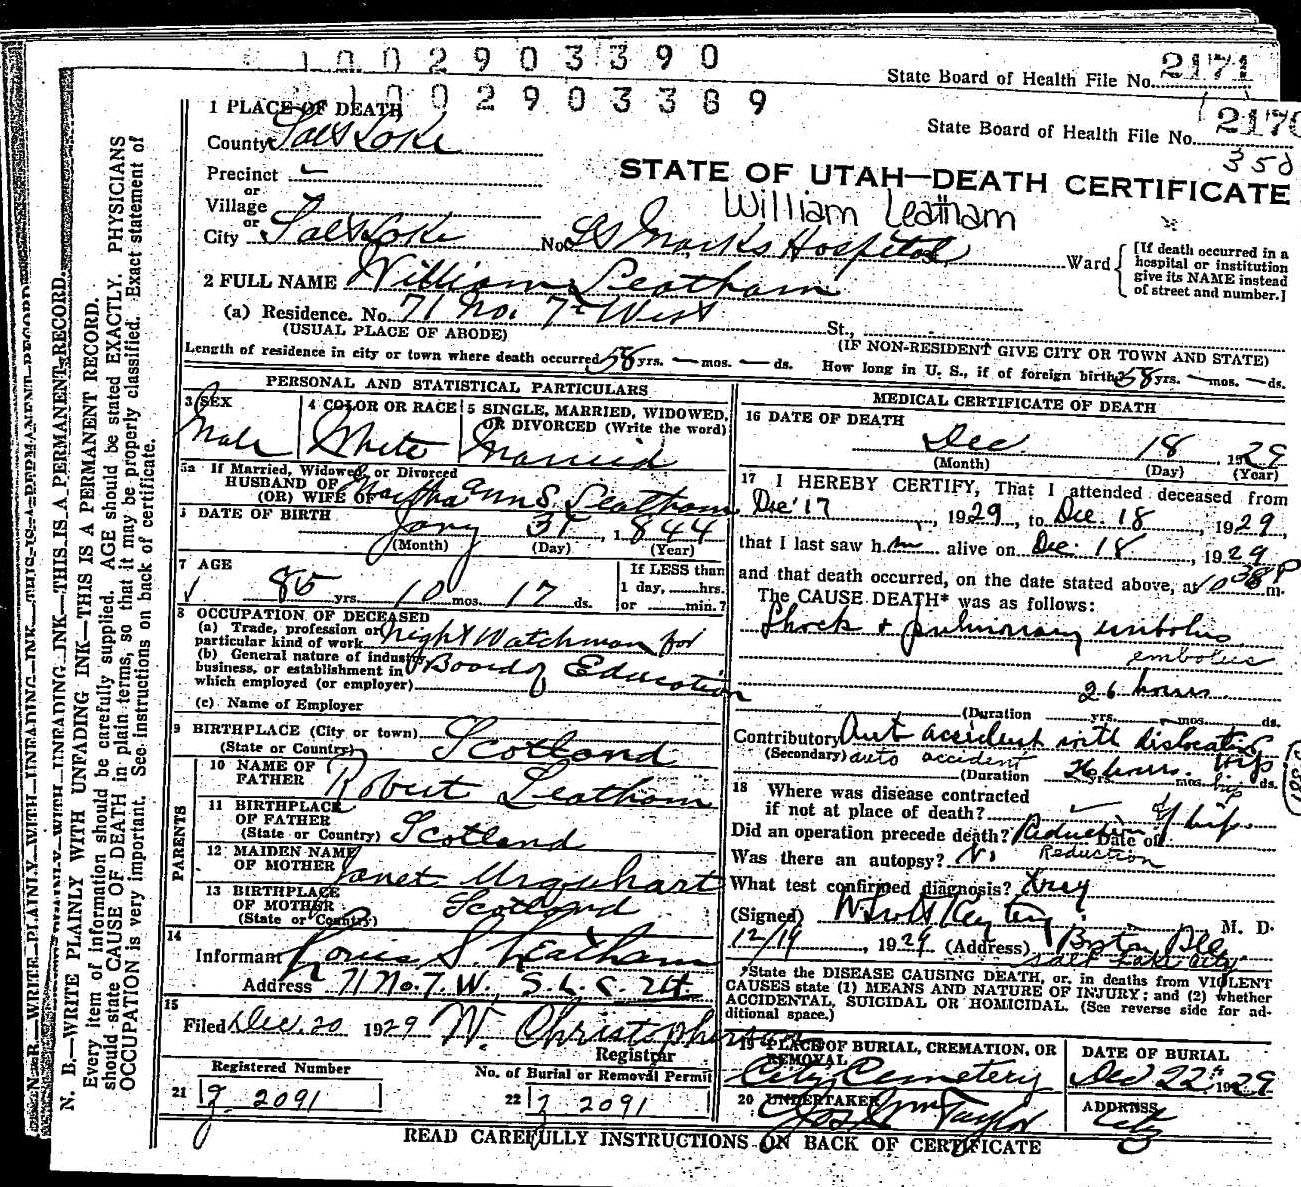 1 0 0 2 9 0 3 3 9 0
State Board of Health File No. 2171
1 0 0 2 9 0 3 3 8 9
State Board of Health File No. 2170
350
STATE OF UTAH—DEATH CERTIFICATE
William Leatham
1 PLACE OF DEATH
County Salt Lake
Precinct
or
Village
or
City Salt Lake No. St Marks Hospital Ward
[If death occurred in a hospital or institution give its NAME instead of street and number.]
2 FULL NAME William Leatham
(a) Residence. No. 71 No. 7th West St.,
(USUAL PLACE OF ABODE) (IF NON-RESIDENT GIVE CITY OR TOWN AND STATE)
Length of residence in city or town where death occurred 58 yrs. — mos. — ds. How long in U. S., if of foreign birth? 58 yrs. — mos. — ds.
PERSONAL AND STATISTICAL PARTICULARS
3 SEX
Male
4 COLOR OR RACE
White
5 SINGLE, MARRIED, WIDOWED, OR DIVORCED (Write the word)
Married
5a If Married, Widowed or Divorced
HUSBAND OF
(OR) WIFE OF Martha Ann S. Leatham
DATE OF BIRTH
Jany 31, 1844
(Month) (Day) (Year)
7 AGE
85 yrs. 10 mos. 17 ds.
If LESS than
1 day,......hrs.
or ......min.?
8 OCCUPATION OF DECEASED
(a) Trade, profession or
particular kind of work Night Watchman for
(b) General nature of industry
business, or establishment in
which employed (or employer) Board of Education
(c) Name of Employer
9 BIRTHPLACE (City or town)
(State or Country) Scotland
PARENTS
10 NAME OF
FATHER Robert Leatham
11 BIRTHPLACE
OF FATHER
(State or Country) Scotland
12 MAIDEN NAME
OF MOTHER Janet Urquhart
13 BIRTHPLACE
OF MOTHER
(State or Country) Scotland
14
Informant Louis S. Leatham
Address 71 No. 7. W. S. L. C. Ut.
15
Filed Dec. 20 1929 W. Christopherson
Registrar
Registered Number No. of Burial or Removal Permit
21 2091 22 2091
MEDICAL CERTIFICATE OF DEATH
16 DATE OF DEATH
Dec 18, 1929
(Month) (Day) (Year)
17 I HEREBY CERTIFY, That I attended deceased from
Dec 17, 1929, to Dec. 18, 1929,
that I last saw him alive on Dec. 18, 1929
and that death occurred, on the date stated above, at 10 38 P m.
The CAUSE DEATH* was as follows:
Shock & pulmonary embolus
embolus
26 hours.
(Duration ......yrs.......mos.......ds.
Contributory Aut accident with dislocating
(Secondary) auto accident hip
(Duration 26 hours. yrs. mos. hip ds.
18 Where was disease contracted
if not at place of death?
Did an operation precede death? Reduction of hip Date of
Was there an autopsy? No Reduction
What test confirmed diagnosis? Xray
(Signed) M. D.
12/19, 1929 (Address) Boston Bldg
Salt Lake City
*State the DISEASE CAUSING DEATH, or, in deaths from VIOLENT CAUSES state (1) MEANS AND NATURE OF INJURY; and (2) whether ACCIDENTAL, SUICIDAL OR HOMICIDAL. (See reverse side for additional space.)
19 PLACE OF BURIAL, CREMATION, OR
REMOVAL
City Cemetery
DATE OF BURIAL
Dec 22nd 1929
20 UNDERTAKER
Jos. Wm Taylor
ADDRESS
City
READ CAREFULLY INSTRUCTIONS ON BACK OF CERTIFICATE
N. B.—WRITE PLAINLY WITH UNFADING INK—THIS IS A PERMANENT RECORD.
Every item of information should be carefully supplied. AGE should be stated EXACTLY. PHYSICIANS
should state CAUSE OF DEATH in plain terms, so that it may be properly classified. Exact statement of
OCCUPATION is very important. See instructions on back of certificate.